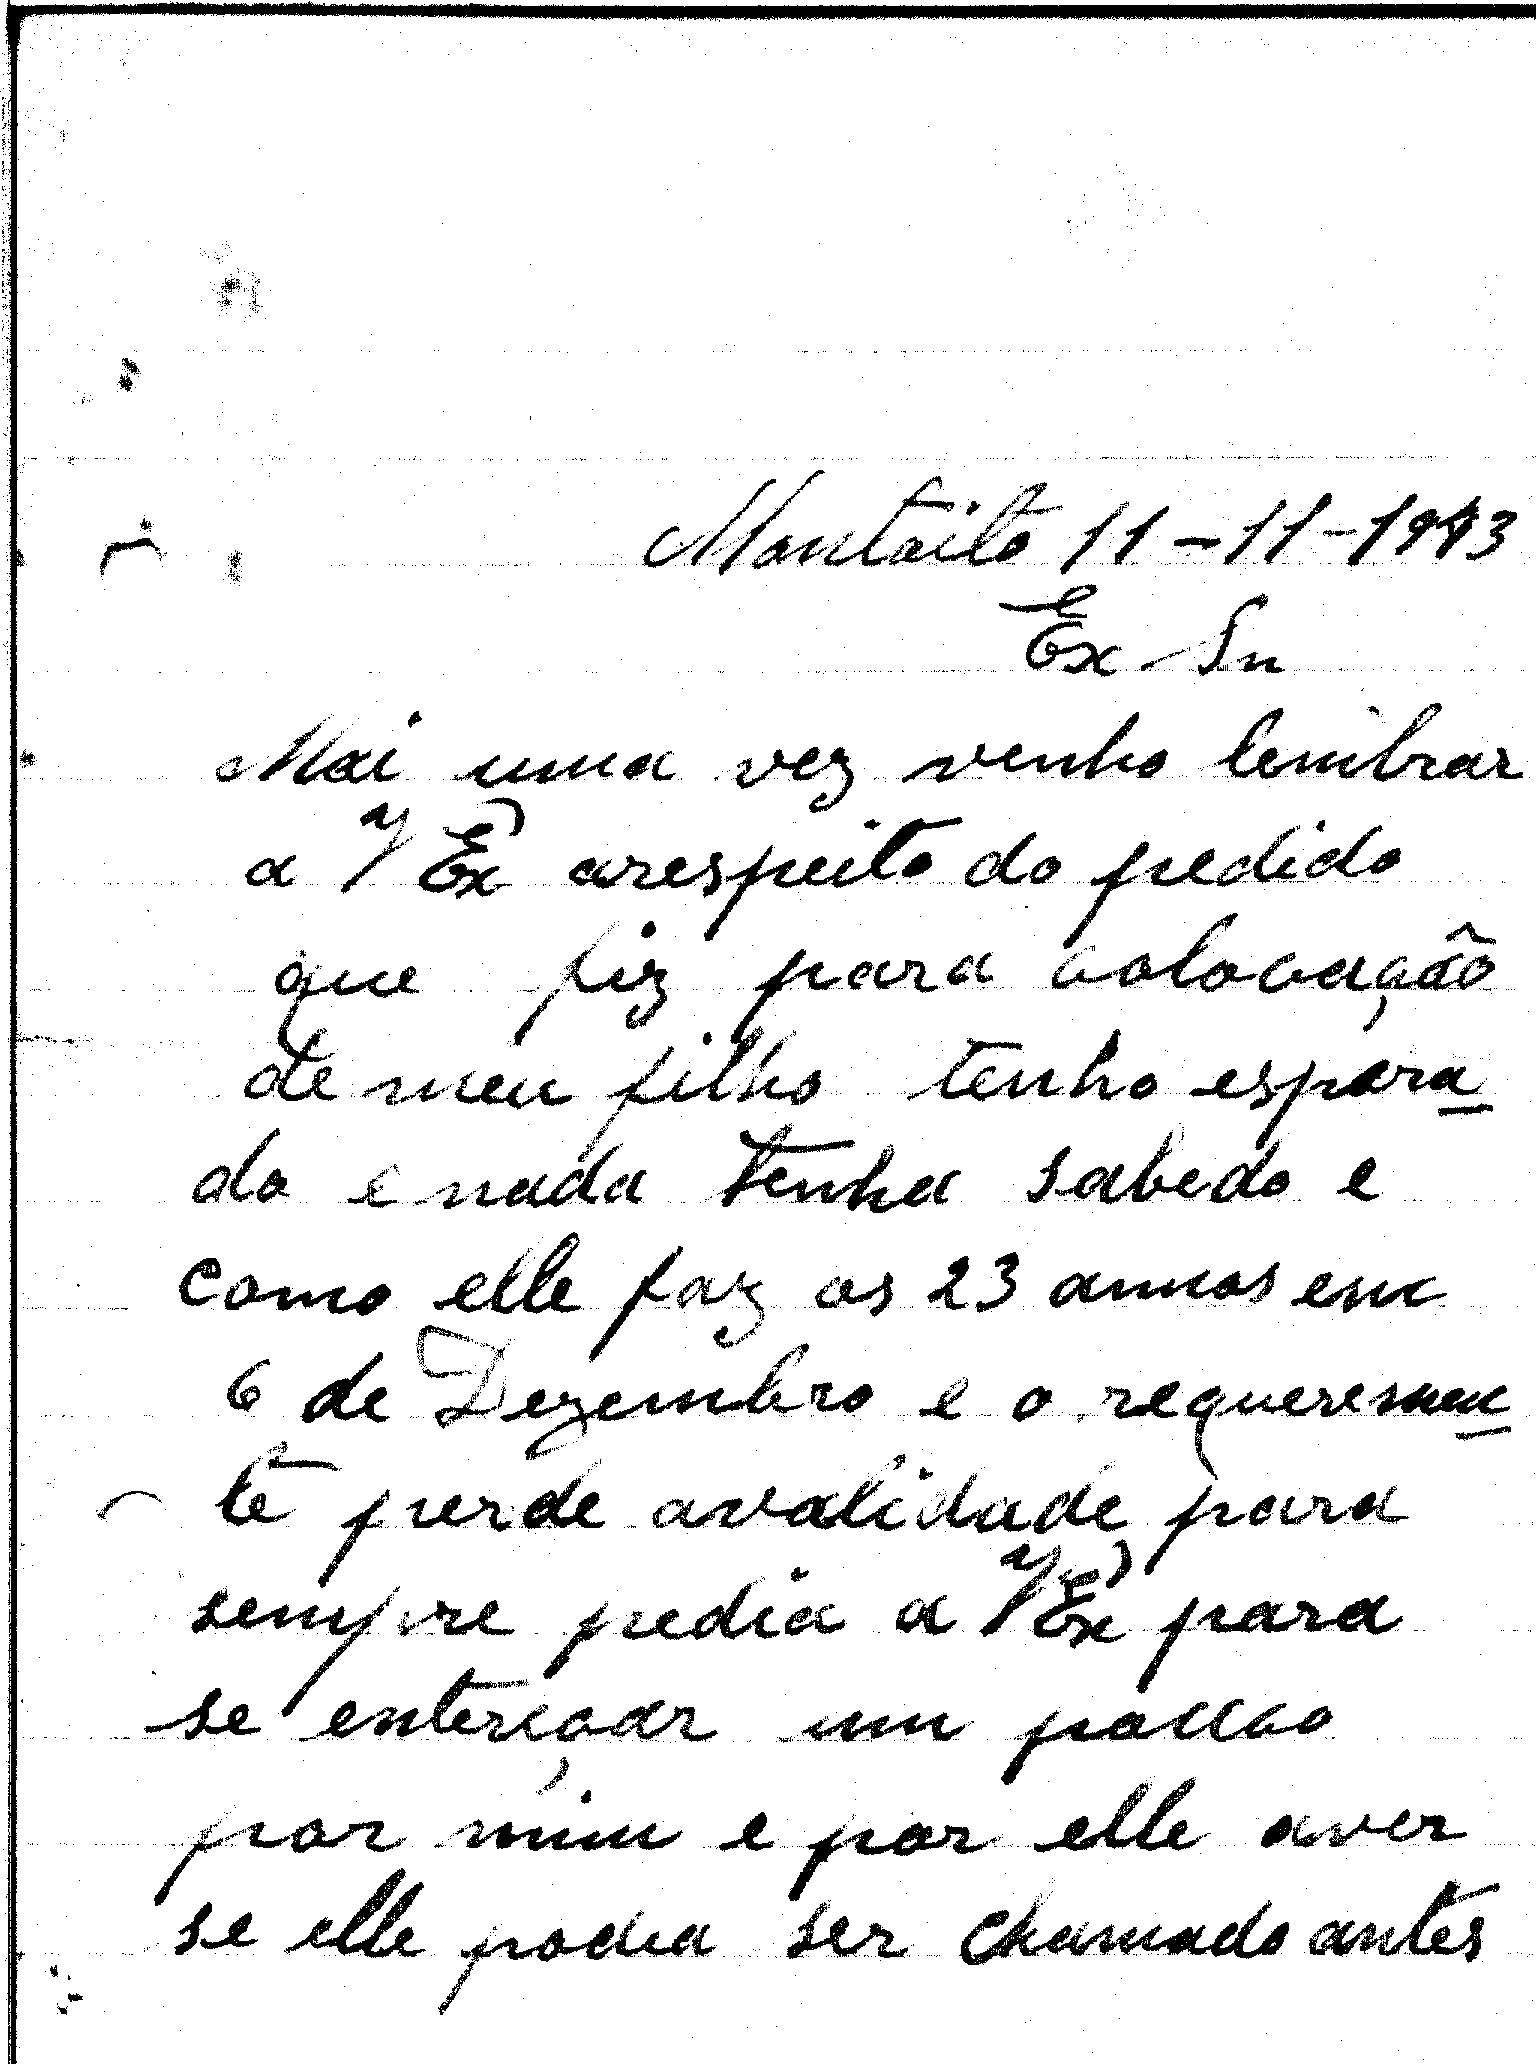 Montoito 11-11-1943
Exe Snr
Mai uma vez venho lembrar
a V Exª arespeito do pedido
que fiz para colocação
de meu filho tenho espera
do e nada tenha sabedo e
como elle faz os 23 annos em
6 de Dezembro e o requeremen
te perde avalidade para
sempre pedia a V Exª para
se enterçoar um pouco
por mim e por elle aver
se elle podia ser chamado antes